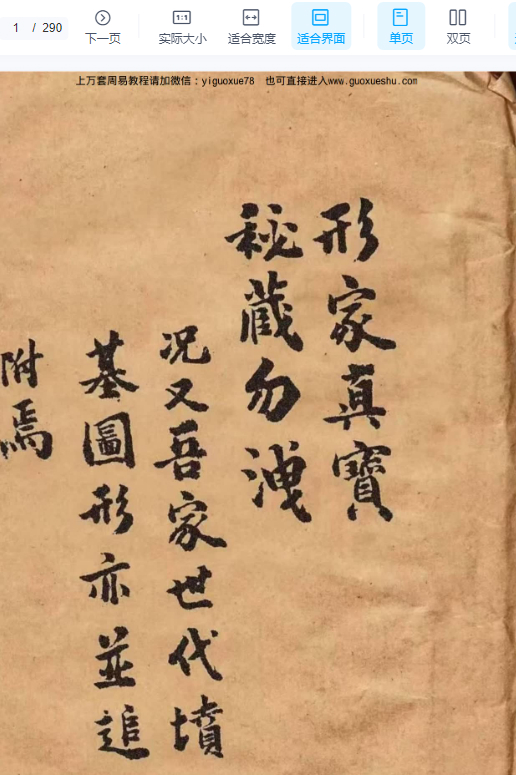 1 / 290
下一页
实际大小
适合宽度
适合界面
单页
双页
上万套周易教程请加微信：yiguoxue78 也可直接进入www.guoxueshu.com
形家真寶
秘藏勿洩
况又吾家世代墳
墓圖形亦並追
附焉